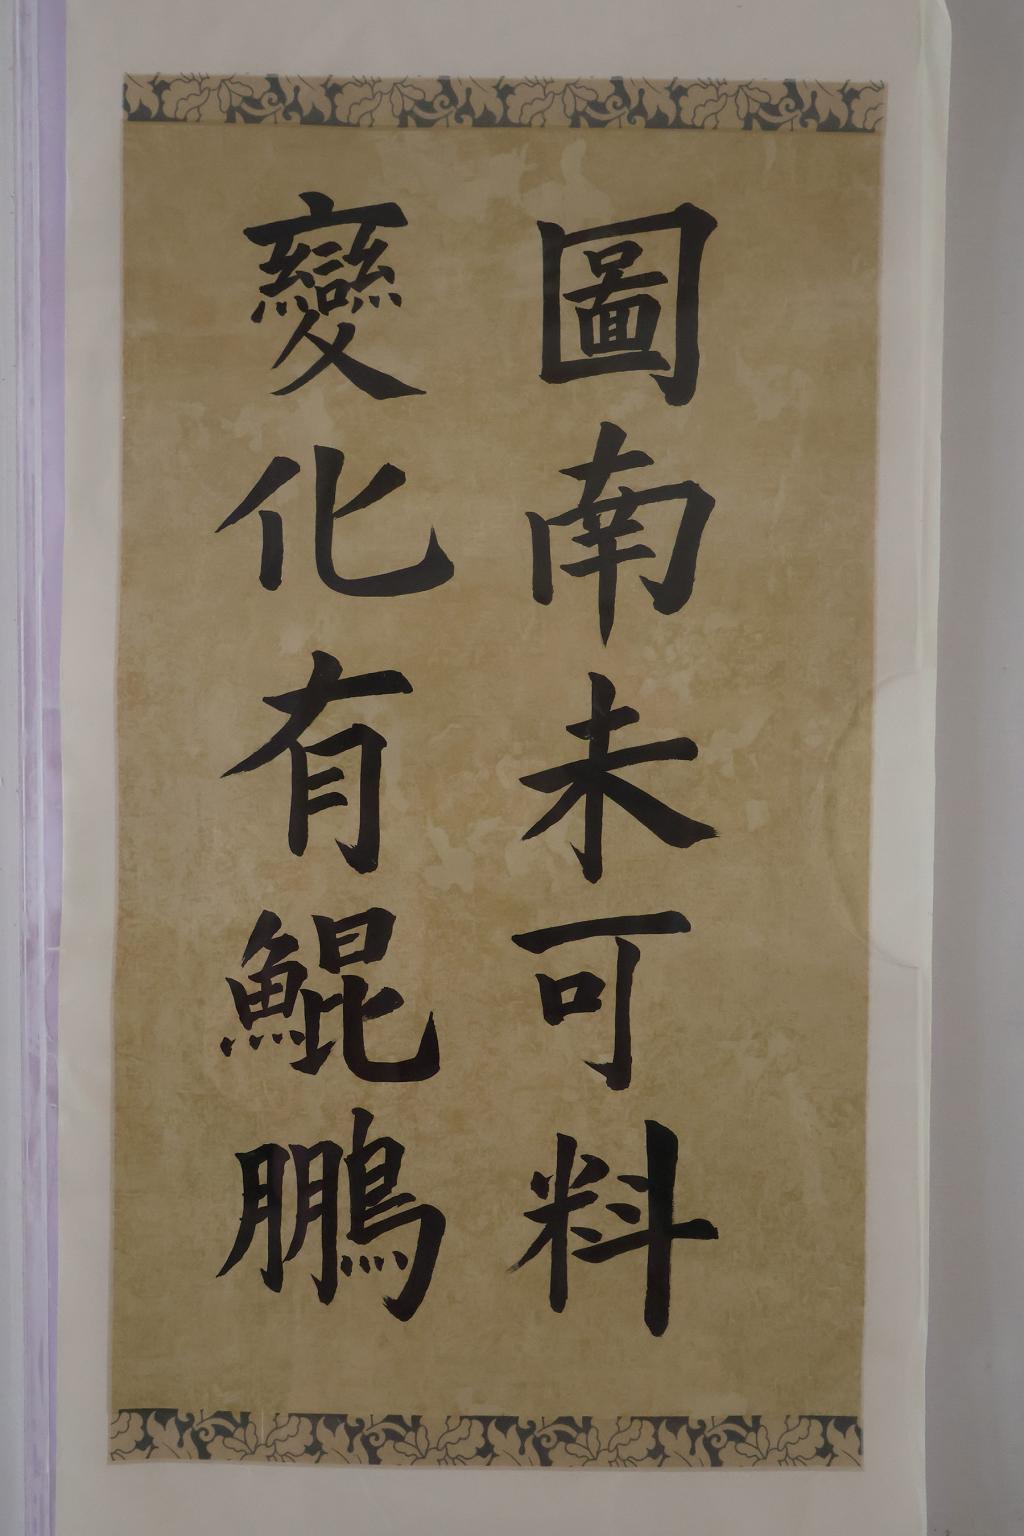 圖南未可料
變化有鯤鵬